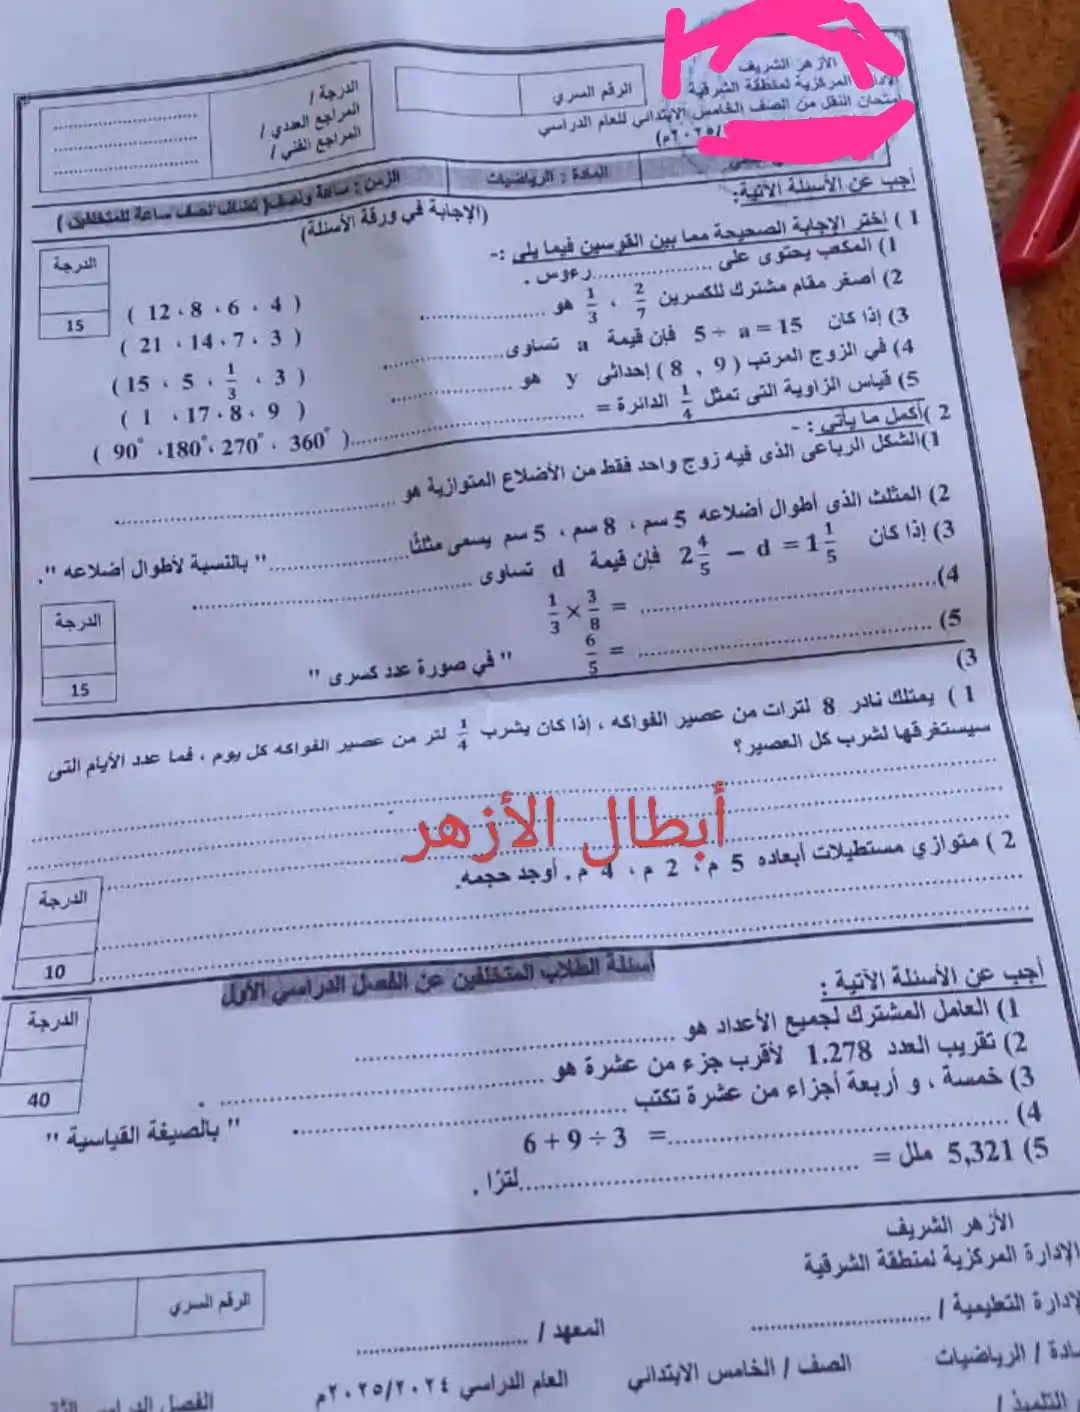 الأزهر الشريف
الإدارة المركزية لمنطقة الشرقية
امتحان النقل من الصف الخامس الابتدائي للعام الدراسي
/٢٠٢٥م)
الرقم السري
الدرجة /
المراجع العددي /
المراجع الفني /
المادة : الرياضيات
الزمن : ساعة ونصف ( تضاف نصف ساعة للمتخلفين )
أجب عن الأسئلة الآتية:
(الإجابة في ورقة الأسئلة)
1 ) اختر الإجابة الصحيحة مما بين القوسين فيما يلي :-
الدرجة
15
1) المكعب يحتوى على ..................رءوس . ( 4 ، 6 ، 8 ، 12 )
2) أصغر مقام مشترك للكسرين 2/7 ، 1/3 هو .................. ( 3 ، 7 ، 14 ، 21 )
3) إذا كان 5 ÷ a = 15 فإن قيمة a تساوى.................. ( 3 ، 1/3 ، 5 ، 15 )
4) في الزوج المرتب ( 9 , 8 ) إحداثى y هو .................. ( 9 ، 8 ، 17 ، 1 )
5) قياس الزاوية التى تمثل 1/4 الدائرة = .................. ( 360° ، 270° ، 180° ، 90° )
2 )أكمل ما يأتى : -
1)الشكل الرباعى الذى فيه زوج واحد فقط من الأضلاع المتوازية هو ..................
2) المثلث الذى أطوال أضلاعه 5 سم ، 8 سم ، 5 سم يسمى مثلثًا.................." بالنسبة لأطوال أضلاعه ".
3) إذا كان 2 4/5 − d = 1 1/5 فإن قيمة d تساوى ..................
4) 1/3 × 3/8 = ..................
5) 6/5 = .................. " في صورة عدد كسرى "
الدرجة
15
3)
1 ) يمتلك نادر 8 لترات من عصير الفواكه ، إذا كان يشرب 1/4 لتر من عصير الفواكه كل يوم ، فما عدد الأيام التى
سيستغرقها لشرب كل العصير؟
أبطال الأزهر
2 ) متوازي مستطيلات أبعاده 5 م ، 2 م ، 4 م . أوجد حجمه.
الدرجة
10
أسئلة الطلاب المتخلفين عن الفصل الدراسي الأول
أجب عن الأسئلة الآتية :
الدرجة
40
1) العامل المشترك لجميع الأعداد هو ..................
2) تقريب العدد 1.278 لأقرب جزء من عشرة هو .................. .
3) خمسة ، و أربعة أجزاء من عشرة تكتب .................. " بالصيغة القياسية "
4) 6 + 9 ÷ 3 = ..................
5) 5,321 ملل = ..................لترًا .
الأزهر الشريف
الإدارة المركزية لمنطقة الشرقية
الرقم السري
الإدارة التعليمية / ..................
المعهد / ..................
المادة / الرياضيات
الصف / الخامس الابتدائي
العام الدراسي ٢٠٢٥/٢٠٢٤م
الفصل الدراسي
التلميذ /